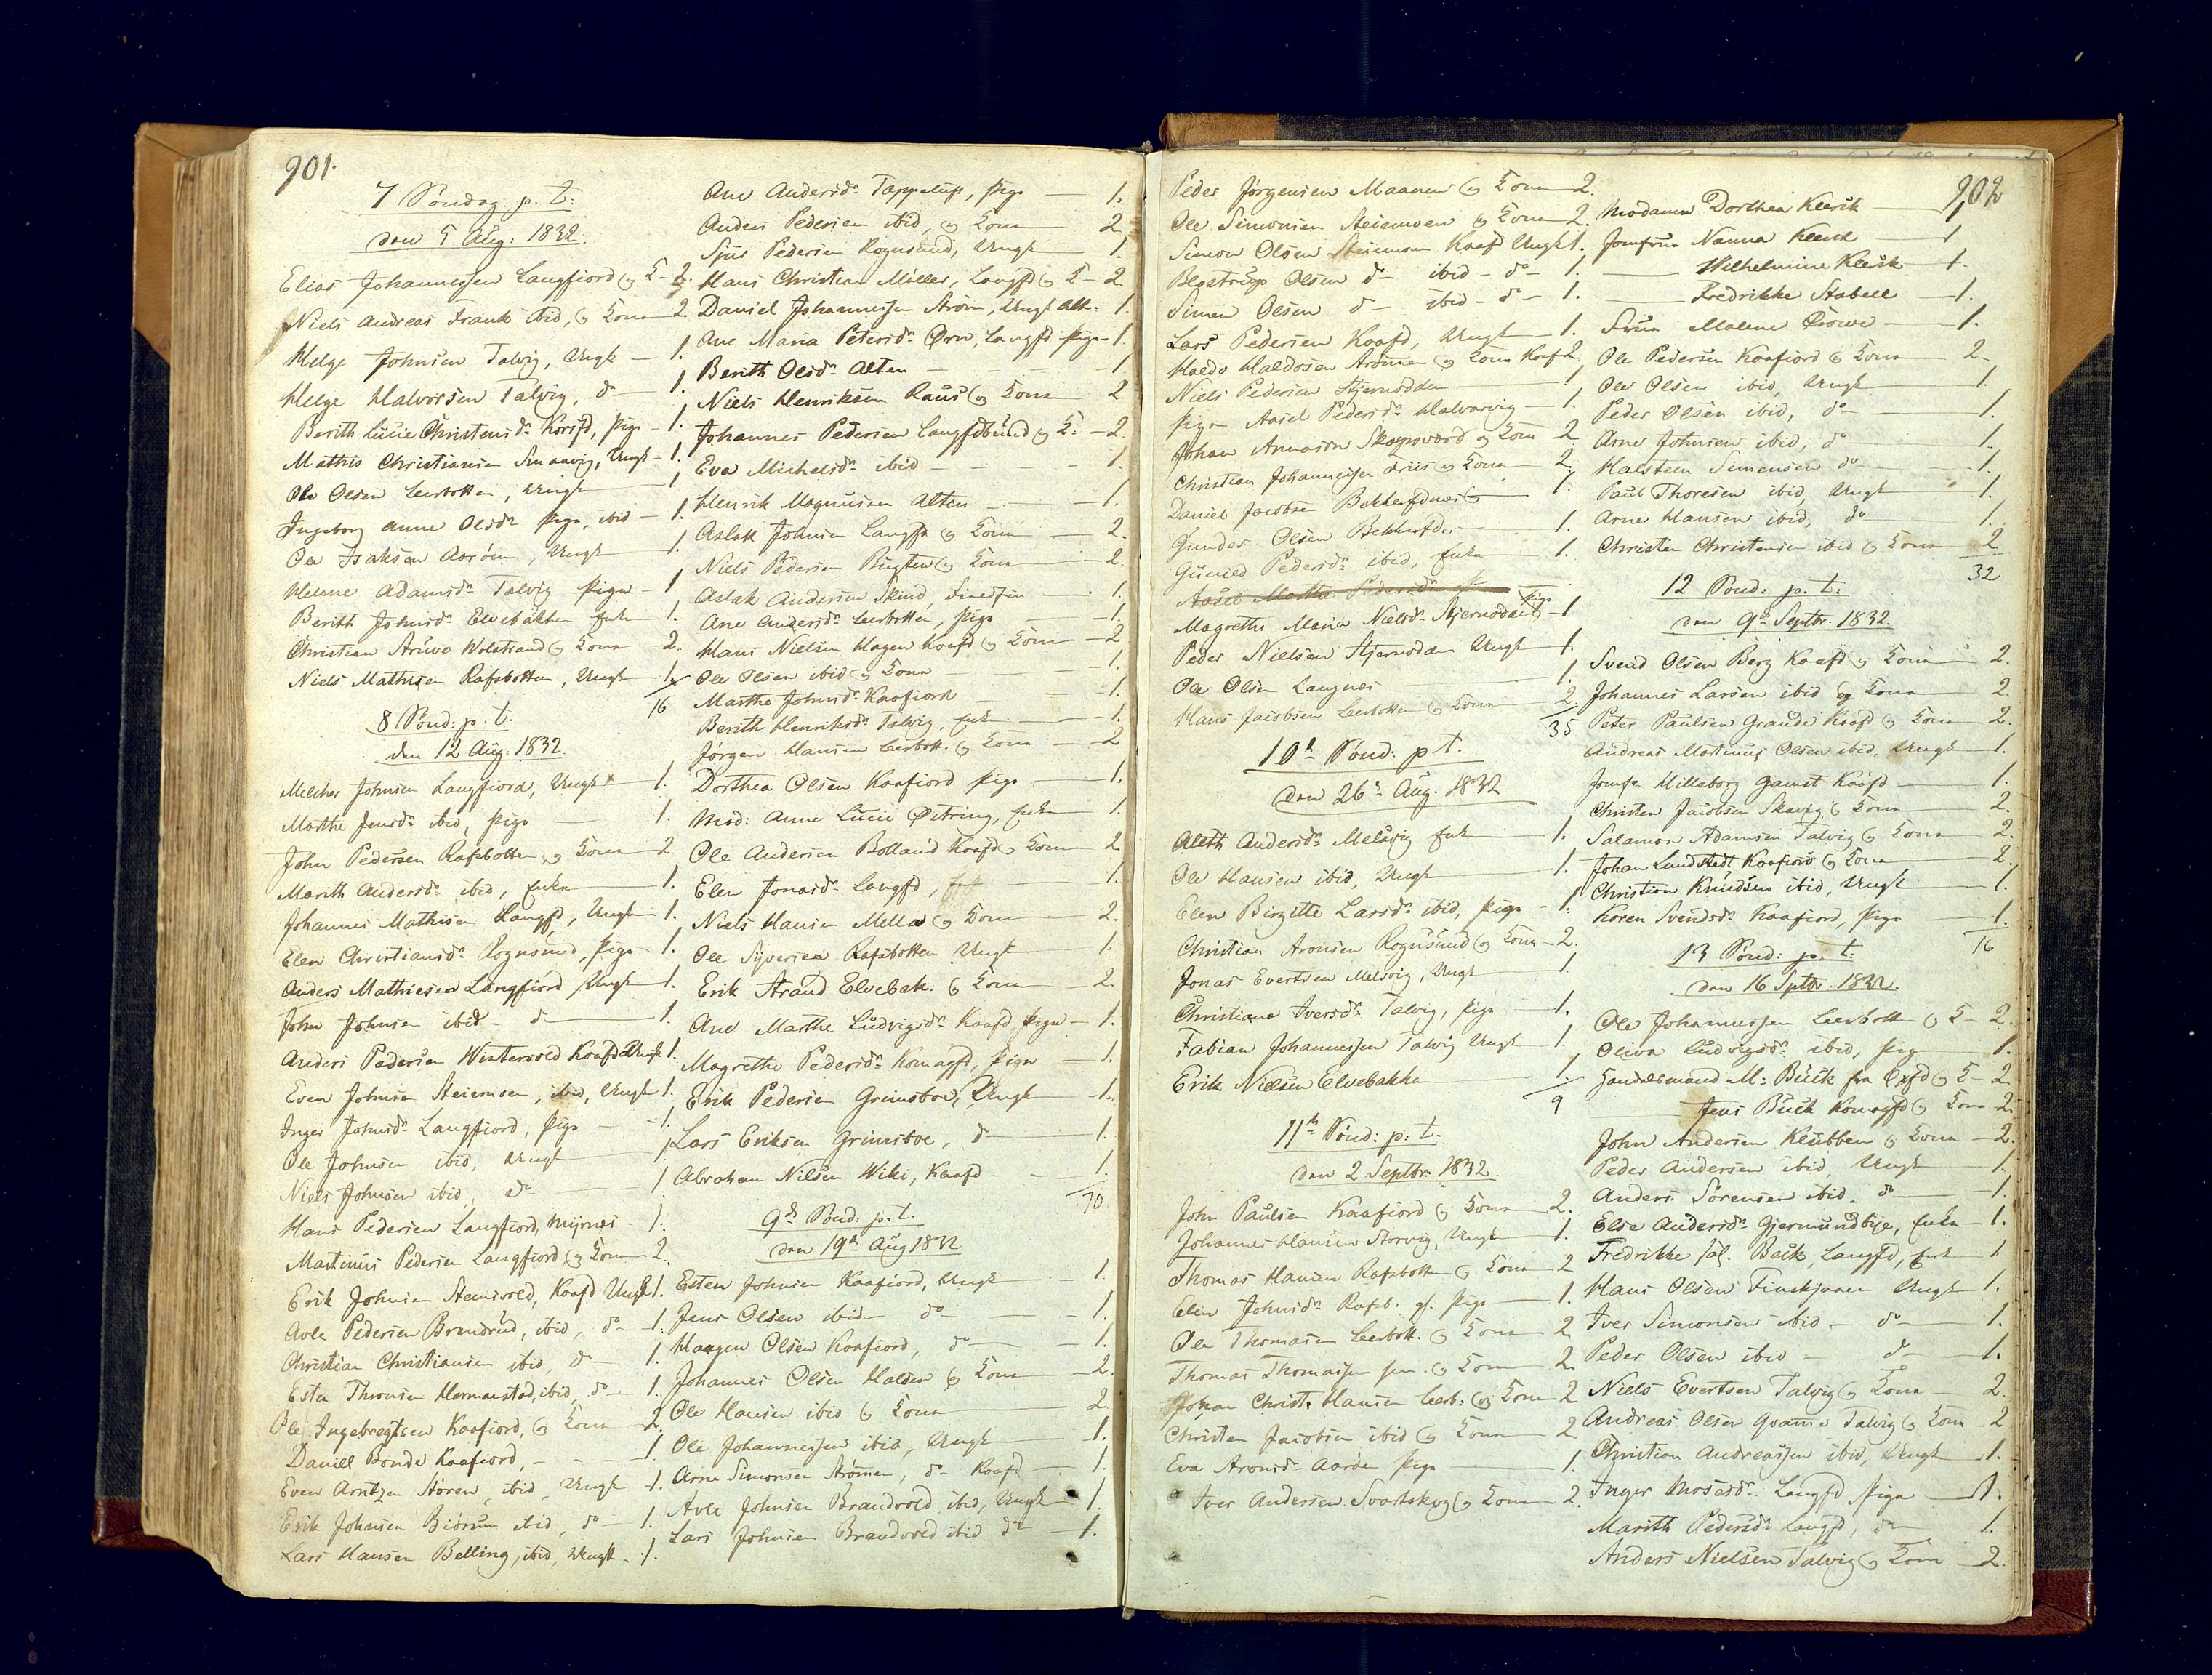 901.
7 Søndag. p. t.
den 5 Aug: 1832.
Elias Johannessen Langfiord og K- 2.
Niels Andreas Frank ibid, og Kona 2.
Helge Johnsen Talvig, Ungk - 1.
Helge Halvorsen Talvig, do - 1.
Berith Lucie Christensdr Korsfd, Pige - 1.
Mathis Christiansen Smaavig, Ungk - 1.
Ole Olsen Leerbotten, Ungk 1
Ingeborg Anne Olsdr Pige, ibid - 1.
Ole Isaksen Aarøen, Ungk 1
Helene Adamsdr Talvig Pige - 1
Berith Johnsdr Elvebakken Enke 1.
Christian Aruwo Wolstrand og Kona 2.
Niels Mathisen Rafsbotten, Ungk - 1
16
8 Sønd: p. t.
den 12 Aug. 1832.
Melcher Johnsen Langfiord, Ungk 1.
Marthe Jensdr ibid, Pige 1.
John Pedersen Rafsbotten og Kona 2.
Marith Andersdr ibid, Enke 1.
Johannes Mathisen Langfd, Ungk 1.
Elen Christiansdr Rognsund, Pige - 1.
Anders Mathiesen Langfiord Ungk 1.
John Johnsen ibid - do 1.
Anders Pedersen Wintervold Kaafd Ungk 1.
Even Johnsen Steiemoen, ibid, Ungk 1.
Inger Johnsdr Langfiord, Pige - 1.
Ole Johnsen ibid, Ungk 1
Niels Johnsen ibid, do 1
Hans Pedersen Langfiord, Myrnes - 1.
Mathius Pedersen Langfiord og Kona 2.
Erik Johnsen Stenvold, Kaafd Ungk 1.
Avle Pedersen Brendrud, ibid, do - 1.
Christian Christiansen ibid, do 1.
Esten Thronsen Hermanstad, ibid, do - 1.
Ole Ingebregtsen Kaafiord, og Kona 2
Daniel Bonde Kaafiord, - - - 1
Even Arntzen Støren, ibid, Ungk 1.
Erik Johnsen Biørum ibid, do - 1.
Lars Hansen Belling, ibid, Ungk - 1.
Ane Andersdr Tappeluft, Pige 1.
Anders Pedersen ibid, og Kona 2
Sjur Pedersen Rognsund, Ungk 1.
Hans Christian Møller, Langfd og K - 2
Daniel Johannessen Strøm, Ungk Alt. 1.
Ane Maria Petersdr Ørn, Langfd Pige - 1.
Berith Olsdr Alten - - - 1
Niels Henriksen Raus og Kona 2
Johannes Pedersen Langfdbund og K: - 2
Eva Michelsdr ibid - - - 1
Henrik Magnusen Alten - 1.
Aslak Johnsen Langfd og Kona 2.
Niels Pedersen Bugten og Kona 2.
Aslak Andersen Skind, Finefin 1.
Ane Andersdr Leerbotten, Pige 1.
Hans Nielsen Hagen Kaafd og Kona - 2
Ole Olsen ibid og Kona - 1.
Marthe Johnsdr Kaafiord - 1.
Berith Henriksdr Talvig, Enke - 1.
Jørgen Hansen Leerbott. og Kona - 2
Dorthea Olsen Kaafiord Pige 1.
Mad: Anne Lucie Østring, Enke 1.
Ole Andersen Bolland Kaafd og Kona 2.
Elen Jonasdr Langfd, 1.
Niels Hansen Mella og Kona 2.
Ole Syversen Rafsbotten Ungk 1.
Erik Strand Elvebak. og Kona 2.
Ane Marthe Ludvigsdr Kaafd, Pige - 1.
Magrethe Pedersdr Komagfd, Pige - 1.
Erik Pedersen Grimsboe, Ungk - 1.
Lars Eriksen Grimsboe, do 1.
Abraham Nilsen Wiki, Kaafd 1.
70.
9de Sønd. p. t.
den 19de Aug 1832
Esten Johnsen Kaafiord, Ungk 1.
Jens Olsen ibid - do - 1.
Haagen Olsen Kaafiord, do - 1.
Johannes Olsen Halsen og Kona - 2.
Ole Hansen ibid og Kona 2
Ole Johannessen ibid, Ungk - 1.
Arne Simonsen Strømen, do - Kaafd 1.
Avle Johnsen Brandvold ibid, Ungk 1.
Lars Johnsen Brandvold ibid do - 1.
Peder Jørgensen Maanen og Kona 2.
Ole Simonsen Steiemoen og Kona 2.
Simon Olsen Steiemoen Kaafd Ungk 1.
Begstrup Olsen do - ibid - do - 1.
Simen Olsen do - ibid - do - 1.
Lars Pedersen Kaafd, Ungk - 1.
Haldo Haldosen Aronen og Kona Kaafd 2.
Niels Pedersen Stjernodden 1
Pige Aasel Pedersdr Halvarvig - 1.
Johan Arnassen Skogsvord og Kona 2
Christian Johannessen Friis og Kona 2.
Daniel Jacobsen Bekkerfdnes 1.
Gunder Olsen Bekkerfd. 1.
Guneld Pedersdr ibid, Enke 1.
Magrethe Maria Nielsdr Stjernodden Pige - 1
Peder Nielsen Stjernodden Ungk 1.
Ole Olsen Langnes 1.
Hans Jacobsen Leerbotten og Kona 2
35
10de Sønd: p t.
den 26de Aug. 1832
Aleth Andersdr Melsvig Enke 1.
Ole Hansen ibid, Ungk 1.
Elen Birgitte Larsdr ibid, Pige - 1.
Christian Aronsen Rognsund og Kona - 2.
Jonas Evertsen Melsvig, Ungk 1.
Christiane Iversdr Talvig, Pige 1.
Fabian Johannessen Talvig Ungk 1
Erik Nielsen Elvebakke 1.
9
11te Sønd: p: t.
den 2 Septbr. 1832.
John Paulsen Kaafiord og Kona 2.
Johannes Hansen Storvig, Ungk 1.
Thomas Hansen Rafsbotten og Kona 2
Elen Johnsdr Rafsb. gl. Pige 1.
Ole Thomasen Leerbott. og Kona 2
Thomas Thomassen sen. og Kona 2.
Johan Christ. Hansen Leerb: og Kona 2
Christen Jacobsen ibid og Kona 2
Eva Aronsdr Aarøe Pige 1.
Iver Andersen Svartskog og Kona - 2.
902
Madame Dorthea Klerk 1
Jomfrue Nanna Klerk 1
Wilhelmine Klerk 1.
Fredrikke Stabell 1.
Frue Malene Crowe 1.
Ole Pedersen Kaafiord og Kona 2.
Ole Olsen ibid, Ungk 1.
Peder Olsen ibid, do 1.
Arne Johnsen ibid, do 1.
Halsteen Simensen do 1.
Paul Thoresen ibid, Ungk 1.
Arne Hansen ibid, do 1.
Christen Christensen ibid og Kona 2
32
12 Sønd: p. t:
den 9de Septbr. 1832.
Svend Olsen Berg Kaafd og Kona 2.
Johannes Larsen ibid og Kona 2.
Peter Paulsen Grande Kaafd og Kona 2.
Andreas Martinus Olsen ibid. Ungk 1.
Jomfr Hilleborg Gamst Kaafd 1.
Christen Jacobsen Skavig, og Kona 2.
Salamon Adamsen Talvig og Kona 2.
Johan Lundstedt Kaafiord og Kona 2.
Christian Knudsen ibid, Ungk 1.
Karen Svendsdr Kaafiord, Pige 1.
16
13 Sønd: p. t:
den 16 Sptbr. 1832.
Ole Johannessen Leerbott og K - 2.
Oliva Ludvigsdr ibid, Pige 1.
Handelsmand M: Buck fra Øxfd og K - 2
Jens Buck Komagfd og Kona 2.
John Andersen Klubben og Kona - 2.
Peder Andersen ibid, Ungk 1.
Anders Sørensen ibid. do 1.
Else Andersdr Gjermundbye, Enke - 1.
Fredrikke sal. Beck, Langfd, Enk 1
Hans Olsen Finskjaaen Ungk 1.
Iver Simonsen ibid - do 1.
Peder Olsen ibid - do 1.
Niels Evertsen Talvig og Kona 2.
Andreas Olsen Qvame Talvig og Kona 2
Christian Andreassen ibid, Ungk 1.
Inger Mosesdr. Langfd Pige 1.
Marith Pedersdr Langfd, do 1.
Anders Nielsen Talvig og Kona 2.